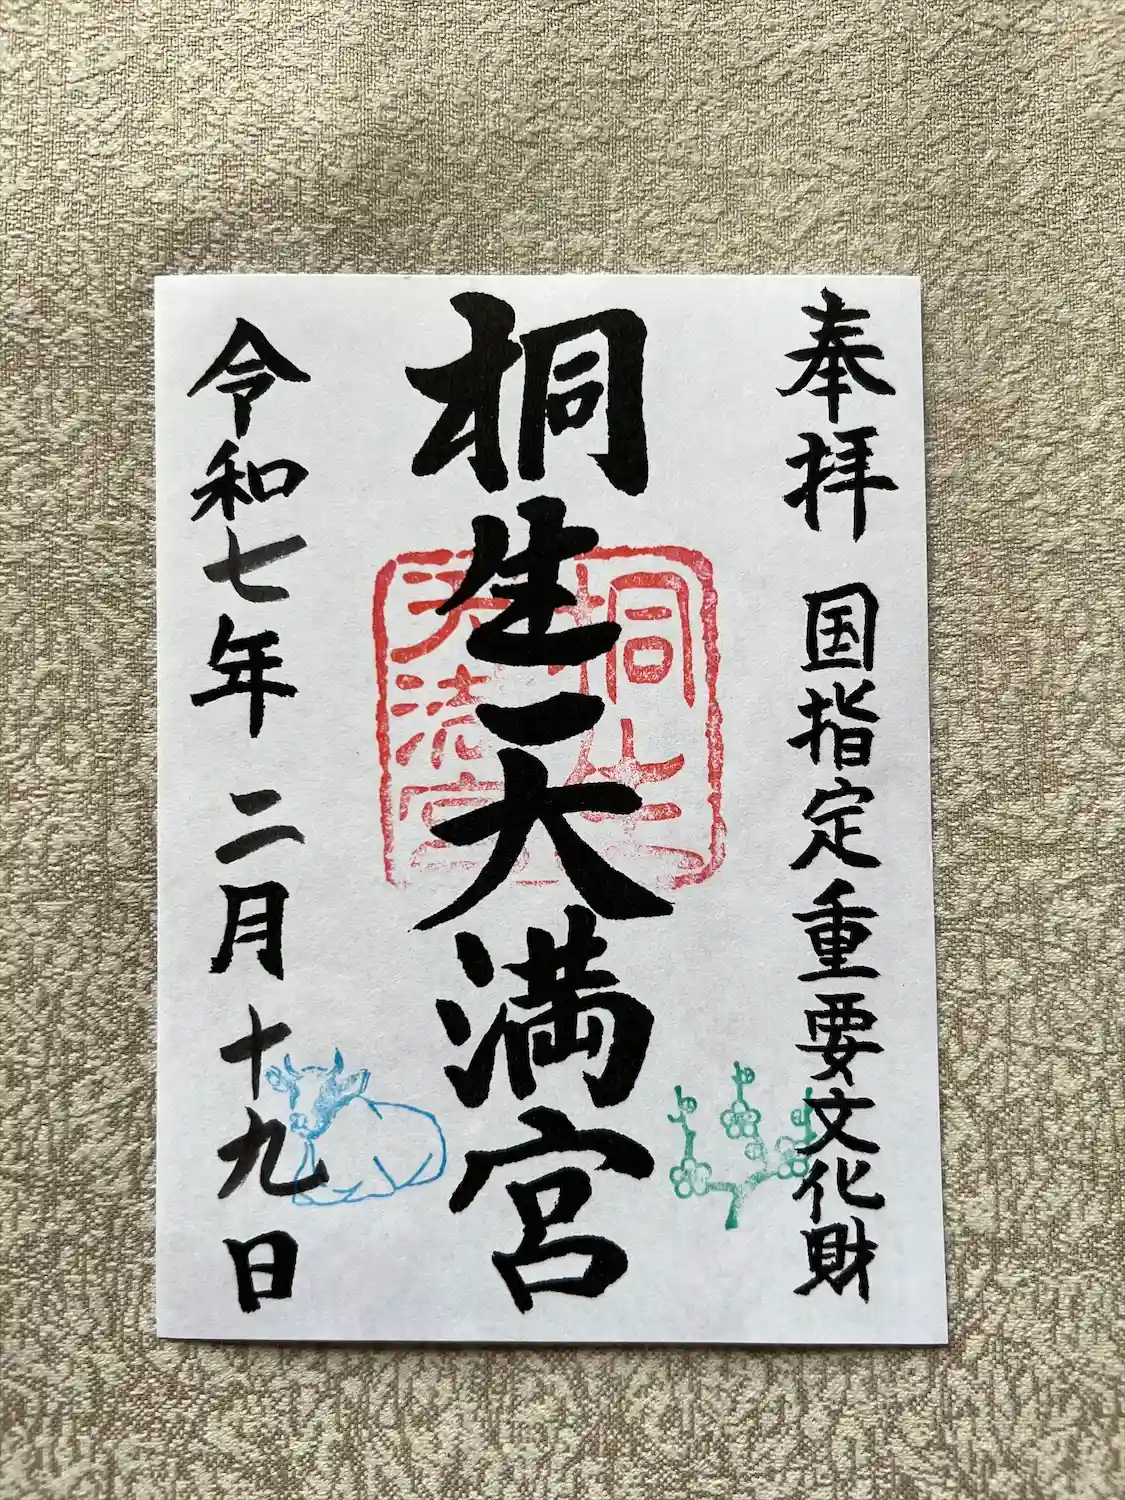 奉拝 国指定重要文化財
桐生天満宮
桐生
天満宮
令和七年 二月十九日